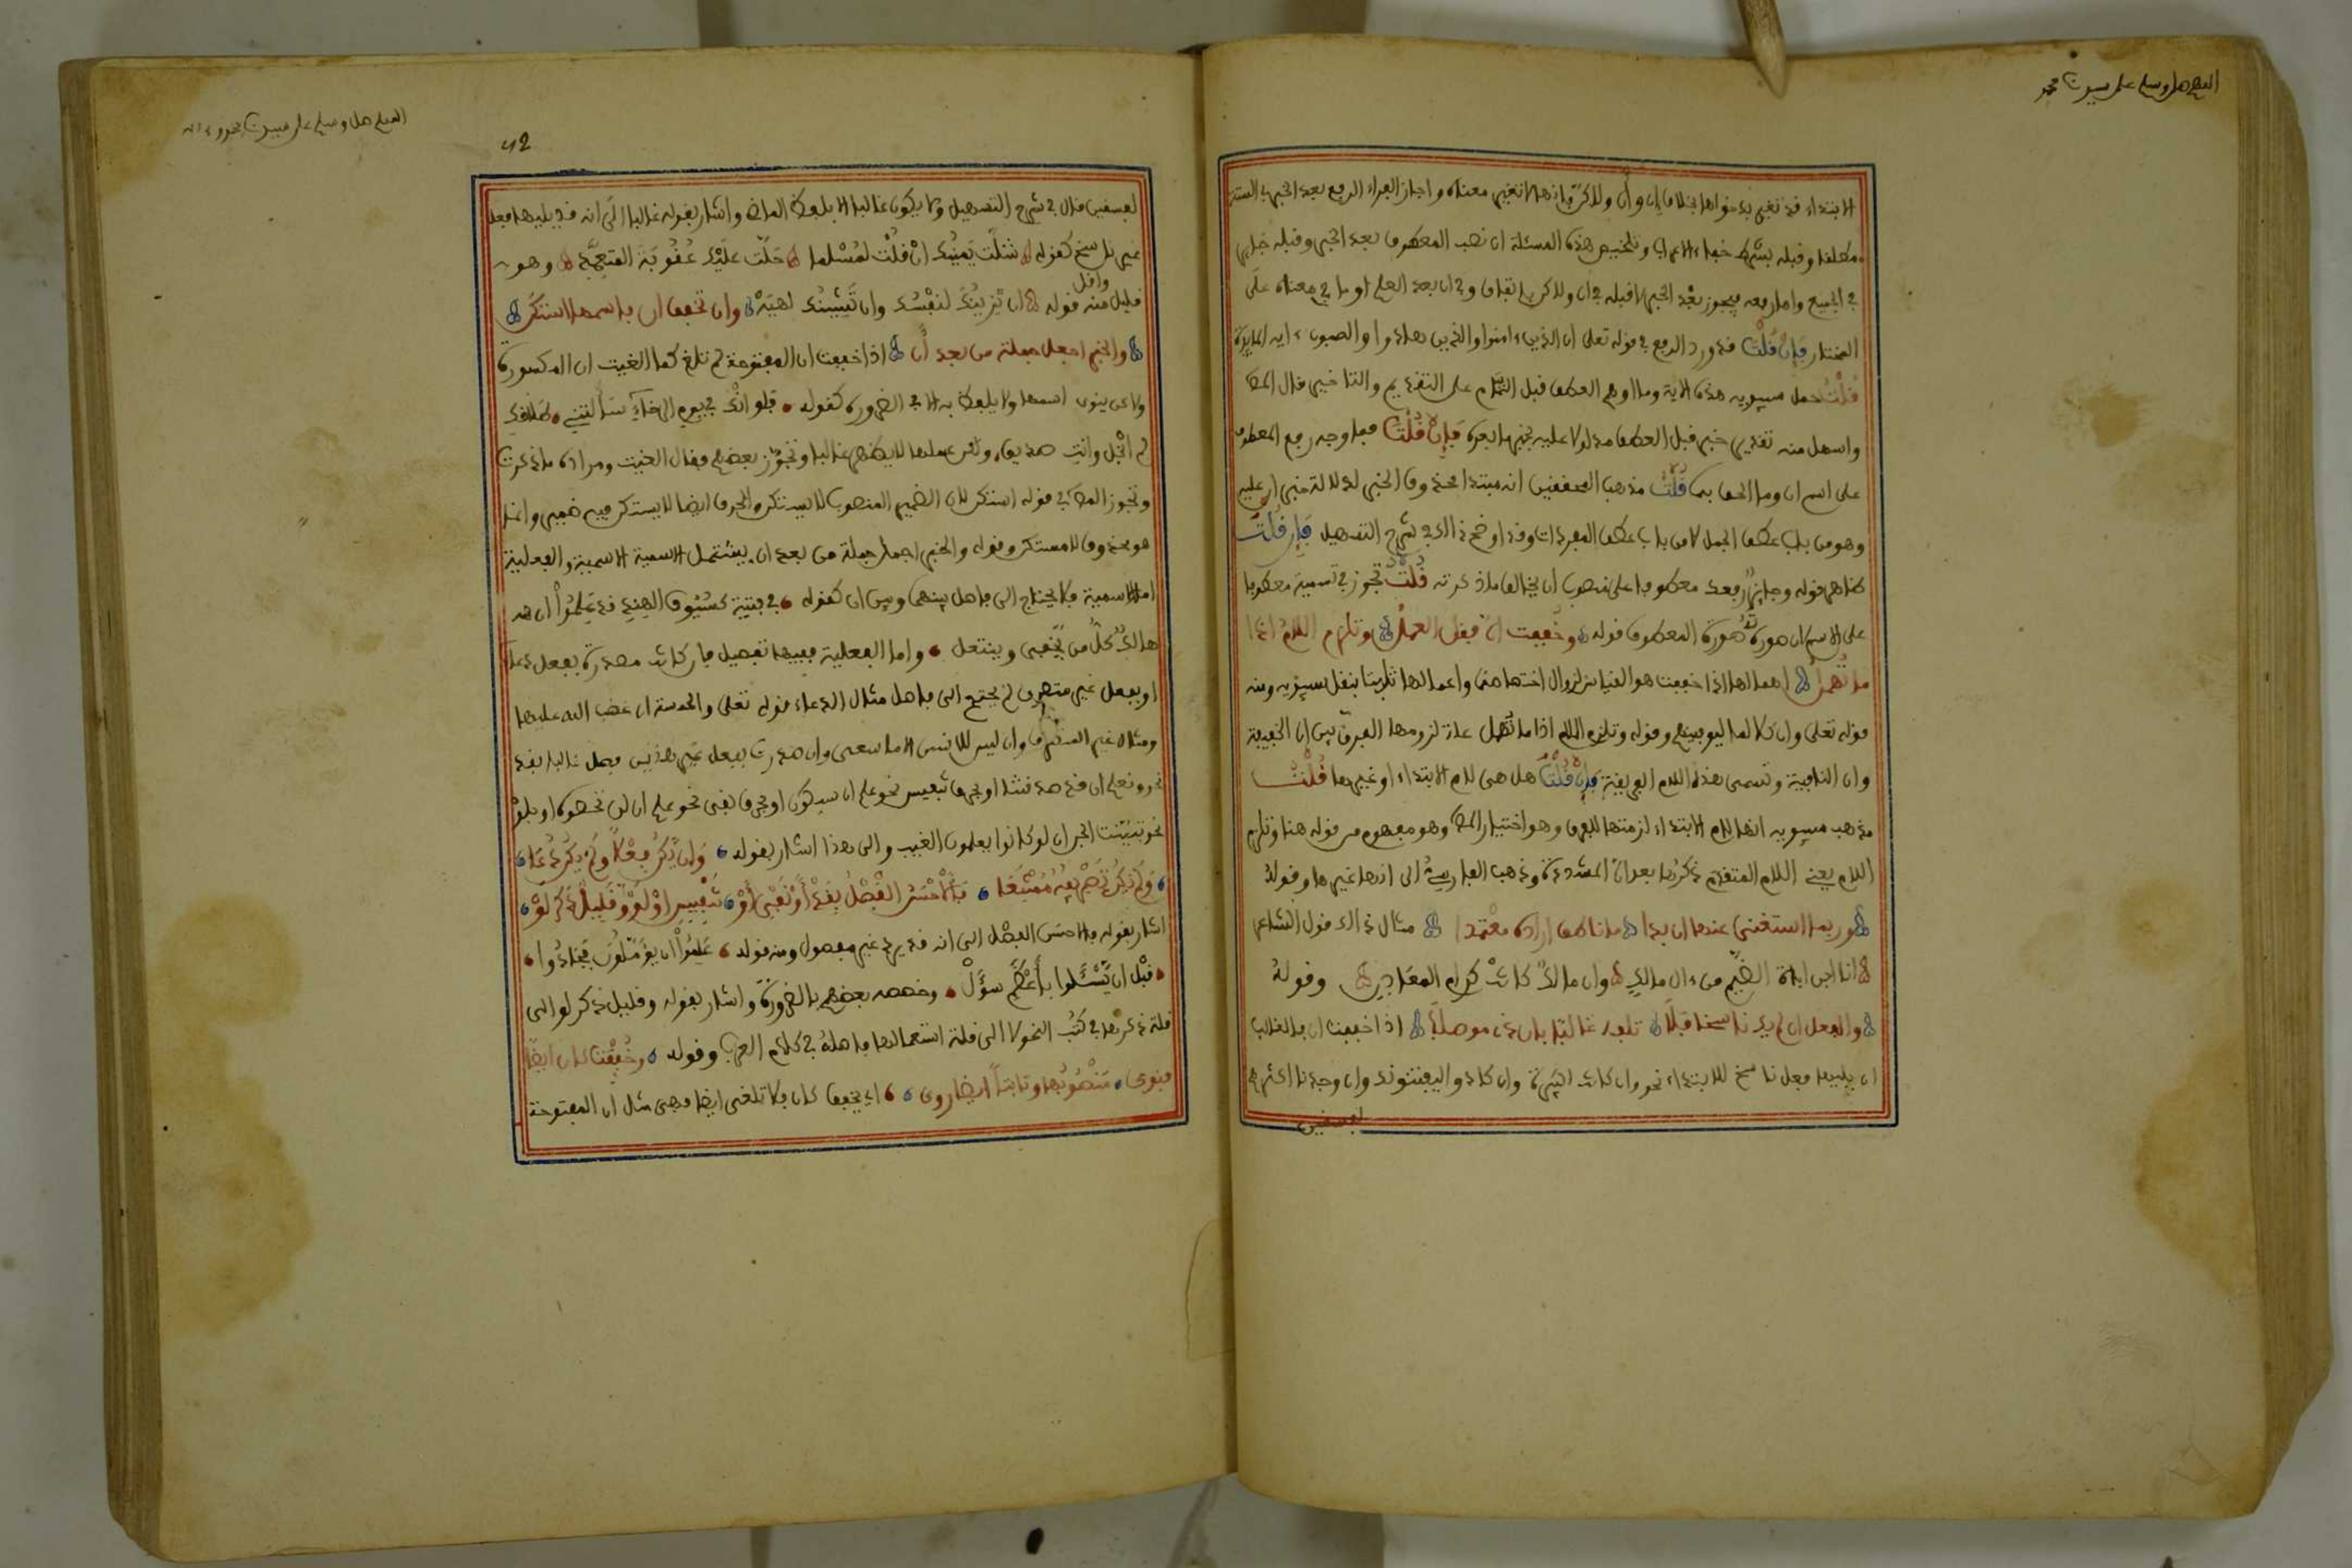 اللهم صل وسلم على سيدنا محمد
الابتداء قد تغير بدخولها بخلاف إن وأن ولاكن فإنها لا تغير معناه وأجاز الفراء الرفع بعد الخبر في الستة
مطلقا وقبله بشرط خفاء الاعراب وتلخيص هذه المسئلة ان نصب المعطوف بعد الخبر وقبله جايز
في الجميع واما رفعه فيجوز بعد الخبر لا قبله في ان ولاكن باتفاق وفي ان بعد العلم او ما في معناه على
المختار فإن قلت قد ورد الرفع في قوله تعلى ان الذين ءامنوا والذين هادوا والصبون ءاية المايدة
قلت حمل سيبويه هذه الاية وما اوهم العطف قبل التمام على التقديم والتاخير قال المص
واسهل منه تقدير خبر قبل العطف مدلولا عليه بخبر ما بعده فإن قلت فما وجه رفع المعطوف
على اسم ان وما الحق بها قلت مذهب المحققين انه مبتدا محذوف الخبر لدلالة خبر ان عليه
وهو من باب عطف الجمل لا من باب عطف المفردات وقد اوضح ذالك في شرح التسهيل فإن قلت
ظاهر قوله وجايز رفعك معطوفا على منصوب ان يخالف ما ذكرته قلت تجوز في تسمية معطوفا
على الاسم ان صورته صورة المعطوف قوله وخففت إن فقل العمل وتلزم اللام اذا
ما تهمل اهمالها اذا خففت هو القياس لزوال اختصاصها واعمالها ثابت بنقل سيبويه ومنه
قوله تعلى وان كلا لما ليوفينهم وقوله وتلزم اللام اذا ما تهمل علة لزومها الفرق بين ان الخفيفة
وان النافية وتسمى هذه اللام الفريقة فإن قلت هل هي لام الابتداء او غيرها قلت
مذهب سيبويه انها لام الابتداء لزمتها للفرق وهو اختيار المص وهو مفهوم من قوله هنا وتلزم
اللام يعني اللام المتقدم ذكرها بعد ان المشددة وذهب الفارسي الى انها غيرها وقوله
وربما استغني عنها ان بدا ما ناطق اراده معتمدا مثال ذالك قول الشاعر
انا ابن اباة الضيم من ءال مالك وان مالك كانت كرام المعادن وقوله
والفعل ان لم يك ناسخا فلا تلفه غالبا بإن ذي موصلا اذا خففت ان فالغالب
ان يليها فعل ناسخ للابتداء نحو وان كانت لكبيرة وان كادوا ليفتنوك وان وجدنا اكثرهم
لفسقين
اللهم صل وسلم على سيدنا محمد وءاله
لفسقين قال في شرح التسهيل ولا يكون غالبا الا بلفظ الماض واشار بقوله غالبا الى انه قد يليها فعل
غير ناسخ كقوله شلت يمينك ان قلت لمسلما حلت عليك عقوبة المتعمد وهو
وافل
قليل منه قوله ان تزينك لنفسك وان تشينك لهيه وان تخفف ان فاسمها استكن
والخبر اجعل جملة من بعد أن اذا خففت ان المفتوحة لم تلغ كما الغيت ان المكسورة
ولاكن ينوى اسمها ولا يلفظ به الا في الضرورة كقوله فلو انك في يوم الرخاء سألتني طلاقك
لم ابخل وانت صديق ولكن عملها لا يظهر غالبا وتجوز بعضهم فقال الغيت ومراده ما ذكرت
وتجوز المص في قوله استكن لان الضمير المنصوب لا يستكن والحرف ايضا لا يستكن فيه ضمير وانما
هو محذوف لا مستكن وقوله والخبر اجعل جملة من بعد ان يشتمل الاسمية والفعلية
اما الاسمية فلا يحتاج الى فاصل بينها وبين ان كقوله في فتية كسيوف الهند قد علموا ان
هالك كل من يحفى وينتعل واما الفعلية ففيها تفصيل فإن كانت مصدرة بفعل دعاء
او بفعل غير متصرف لم يحتج الى فاصل مثال الدعاء قوله تعلى والخمسة ان غضب الله عليها
ومثال غير المتصرف وان ليس للانسن الا ما سعى وان صدرت بفعل غير هذين فصل غالبا بقد
نحو ونعلم ان قد صدقتنا او بحرف تنفيس نحو علم ان سيكون او بحرف نفي نحو علم ان لن تحصوه او بلو
نحو تبينت الجن ان لو كانوا يعلمون الغيب والى هذا اشار بقوله وان يكن فعلا ولم يكن دعا
ولم يكن تصريفه ممتنعا فالاحسن الفصل بقد او نفي او تنفيس او لو وقليل ذكر لو
اشار بقوله فالاحسن الفصل الى انه قد يرد غير مفصول ومنه قوله علموا ان يؤملون فجادوا
قبل ان يسئلوا بأعظم سؤل وخصصه بعضهم بالضرورة واشار بقوله وقليل ذكر لو الى
قلة ذكرها في كتب النحو لا الى قلة استعمالها فاصلة في كلام العرب وقوله وخففت كان ايضا
فنوي منصوبها وثابتا ايضا روي اي تخفف كان فلا تلغى ايضا فهي مثل ان المفتوحة